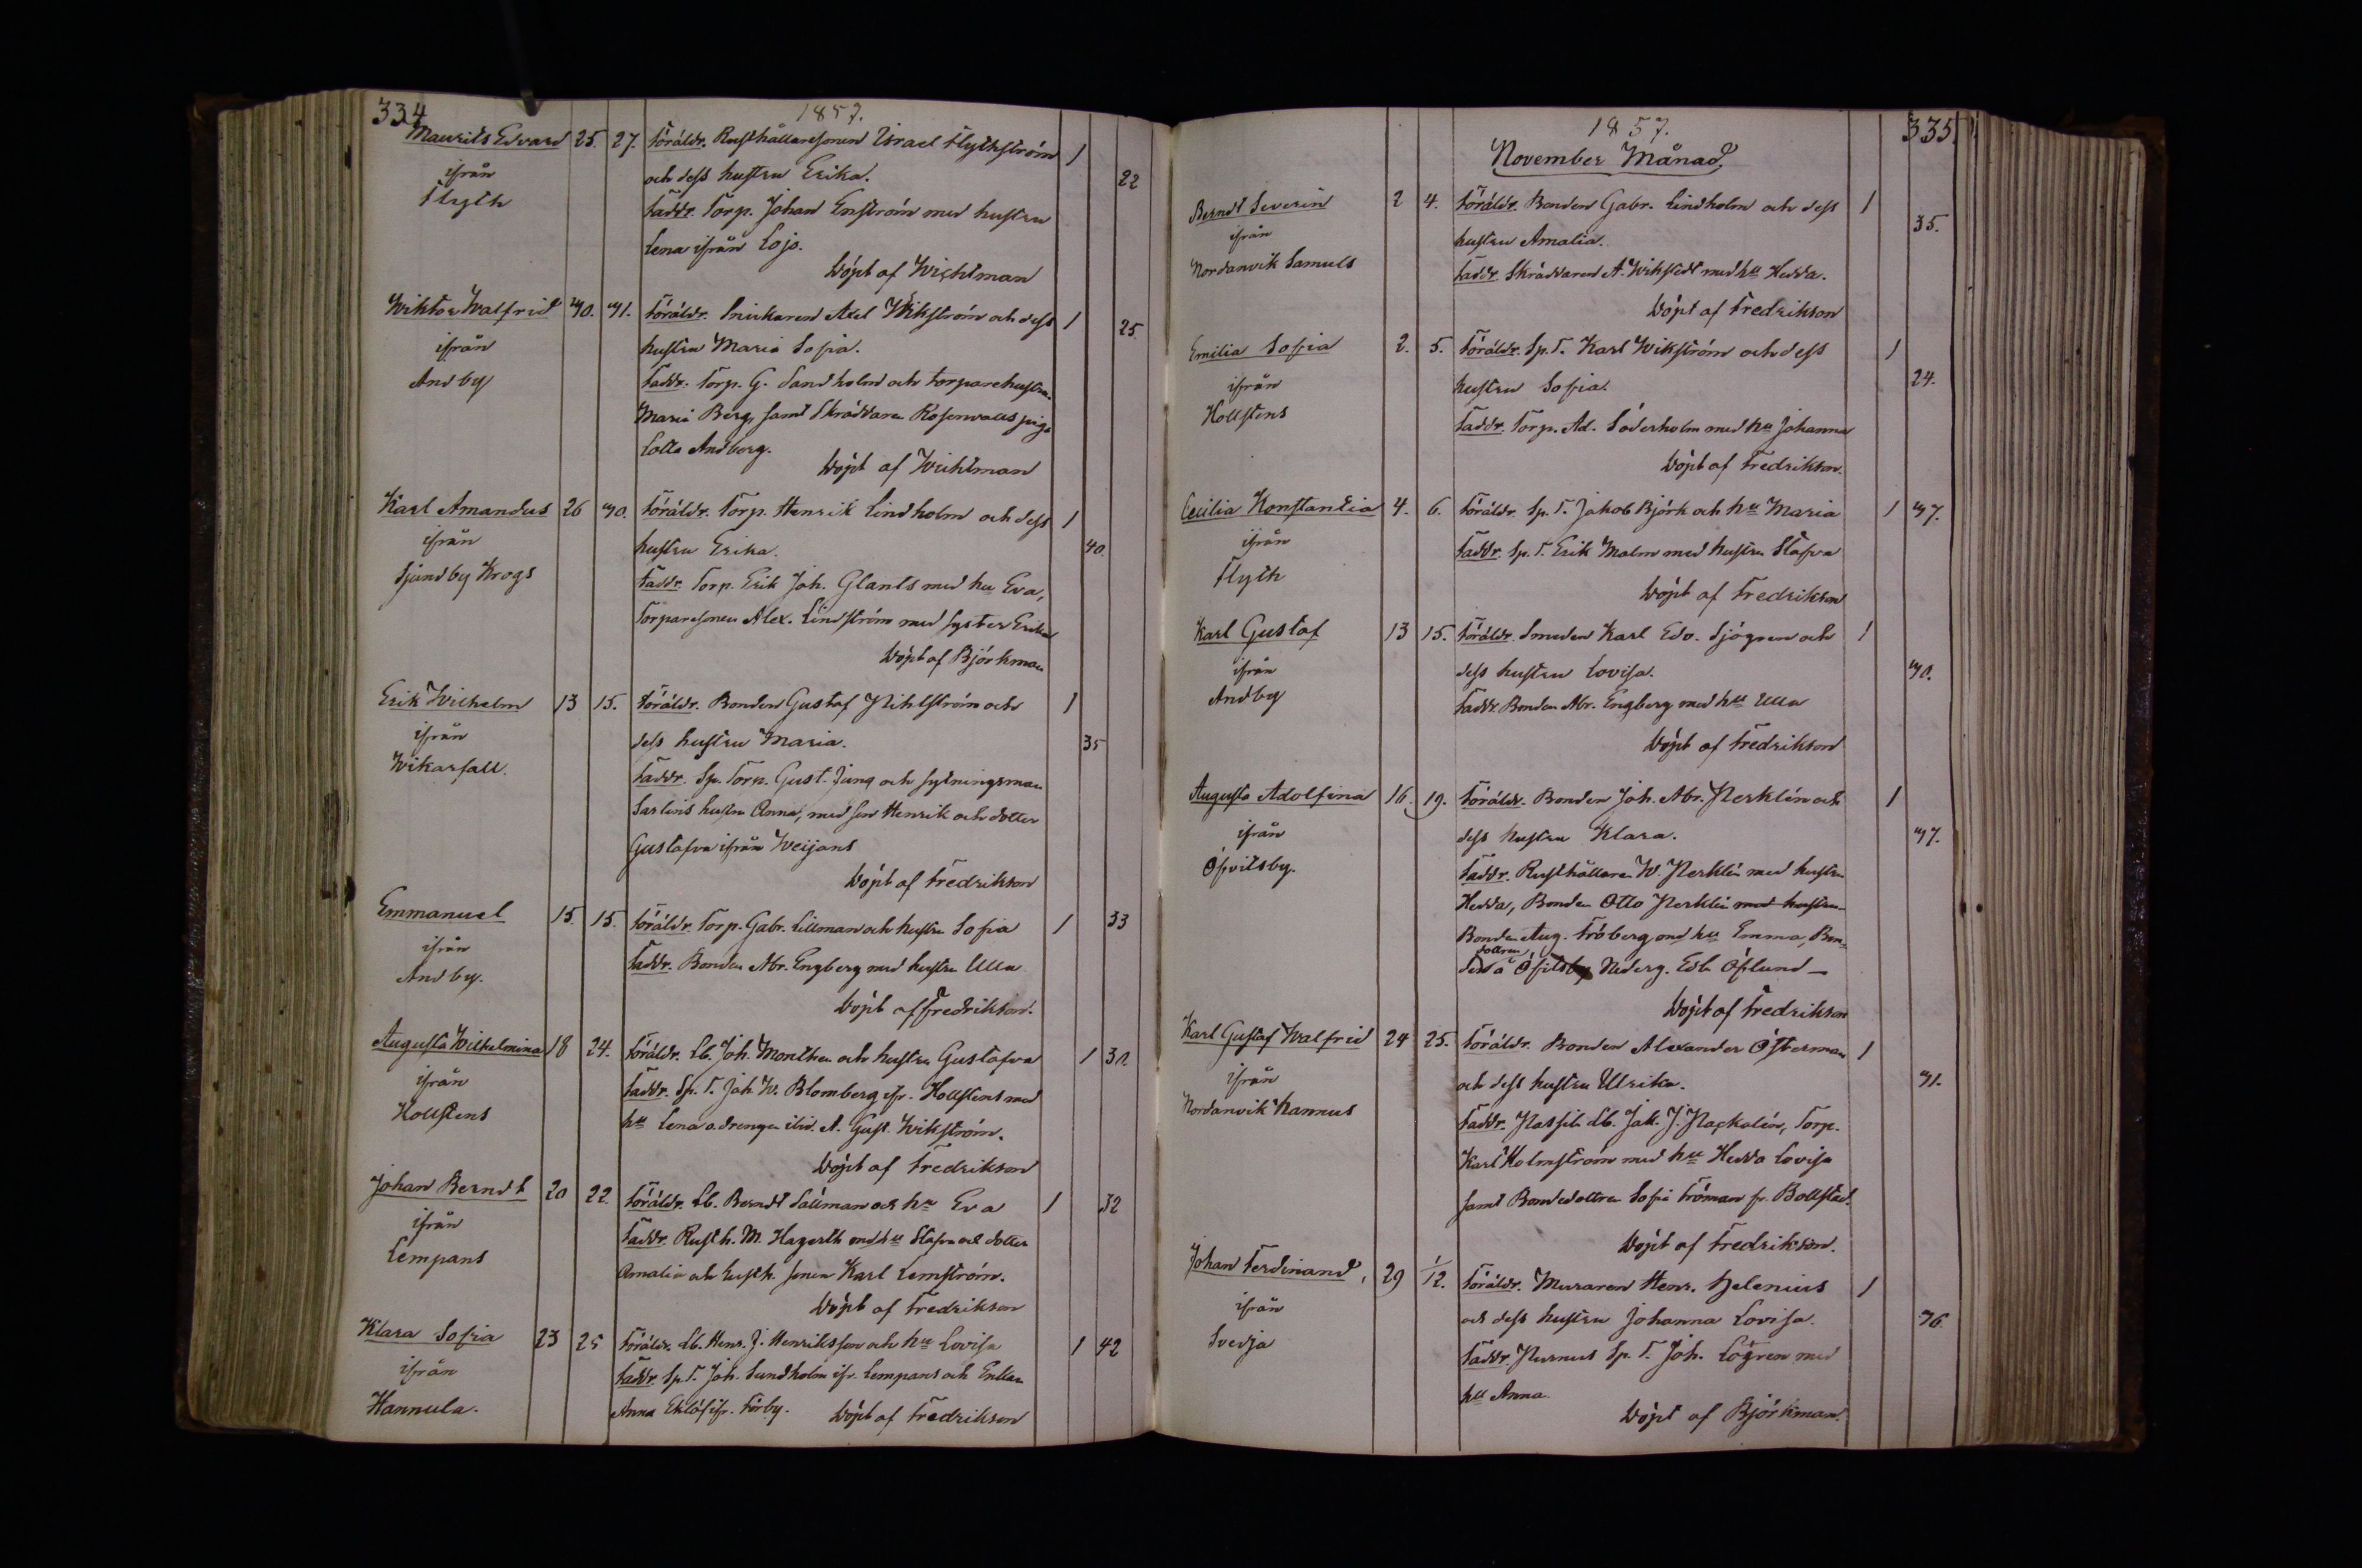 334
1857.
Maurits Edvard 25. 27. Föräldr. Rusthållaresonen Israel Flythström 1
ifrån och dess hustru Erika. 22
Flyth Faddr. Torp. Johan Enström med hustru
Lena ifrån Lojo.
Döpt af Wichtman
Wiktor Walfrid 30. 31. Föräldr. Snickaren Axel Wikström och dess 1
ifrån hustru Maria Sofia. 25.
Andby Faddr. Torp. G. Sandholm och torparehustru
Maria Berg, samt Skräddaren Rosenvalls piga
Lotta Andberg.
Döpt af Wichtman
Karl Amandus 26 30. Föräldr. Torp. Henrik Lindholm och dess 1
ifrån hustru Erika. 40.
Sjundby Krogs Faddr. Torp. Erik Joh. Glants med hu Eva,
Torparesonen Alex. Lindström med syster Erika
Döpt af Björkman
Erik Wilhelm 13 15. Föräldr. Bonden Gustaf Nihlström och 1
ifrån dess hustru Maria. 35
Wikarfall. Faddr. Sp. Torp. Gust. Jung och sytningsman
Sarlins hustru Anna, med son Henrik och dotter
Gustafva ifrån Weijans
Döpt af Fredrikson
Emmanuel 15. 15. Föräldr. Torp. Gabr. Lillman och hustru Sofia 1 33
ifrån Faddr. Bonden Abr. Engberg med hustru Ulla
Andby.
Döpt af Fredrikson.
Augusta Wilhelmina 18 24. Föräldr. Lb. Joh. Monthen och hustru Gustafva 1 31.
ifrån Faddr. Sp. T. Joh. W. Blomberg ifr. Hollstens med
Hollstens hu Lena o. drengen ibid. A. Gust. Wikström.
Döpt af Fredrikson
Johan Berndt 20 22. Föräldr. Lb. Berndt Sallman och hu Eva 1 32
ifrån Faddr. Rusth. M. Hagerth med hu Stafva och dotter
Lempans Amalia och Rusth. sonen Karl Lemström.
Döpt af Fredrikson
Klara Sofia 23 25 Föräldr. Lb. Henr. J. Henriksson och hu Lovisa 1 42
ifrån Faddr. Sp. T. Joh. Sundholm ifr. Lempans och Enkan
Hannula. Anna Eklöf ifr. Förby. Döpt af Fredrikson
1857.
335.
November Månad.
Berndt Severin 2 4. Föräldr. Bonden Gabr. Lindholm och dess 1
ifrån hustru Amalia. 35.
Nordanvik Samuls Faddr. Skräddaren A. Wikstedt med hu Hedda.
Döpt af Fredrikson
Emilia Sofia 2. 5. Föräldr. Sp. T. Karl Wikström och dess 1
ifrån hustru Sofia. 24.
Hollstens Faddr. Torp. Ad. Söderholm med hu Johanna
Döpt af Fredrikson.
Cecilia Konstantia 4. 6. Föräldr. Sp. T. Jakob Björk och hu Maria 1 37.
ifrån Faddr. Sp. T. Erik Malm med hustru Stafva
Flyth
Döpt af Fredrikson
Karl Gustaf 13 15. Föräldr. Smeden Karl Edv. Sjögren och 1
ifrån dess hustru Lovisa. 30.
Andby Faddr. Bonden Abr. Engberg med hu Ulla
Döpt af Fredrikson
Augusta Adolfina 16. 19. Föräldr. Bonden Joh. Abr. Nerklén och 1
ifrån dess hustru Klara. 37.
Öfvitsby. Faddr. Rusthållaren W. Nerklén med hustru
Hedda, Bonden Otto Nerklén med hustru
Bonden Aug. Fröberg med hu Emma, Bon-
dottren
ded å Öfitsby Nederg. Edl. Öflund —
Döpt af Fredrikson
Karl Gustaf Walfrid 24 25. Föräldr. Bonden Alexander Österman 1
ifrån och dess hustru Ulrika. 31.
Nordanvik Hannus Faddr. Lb. Jak. J. Nackalén, Torp.
Karl Holmström med hu Hedda Lovisa
samt Bondedottren Sofia Fröman fr. Bollstad.
Döpt af Fredrikson.
Johan Ferdinand, 29 1/12. Föräldr. Muraren Henr. Helenius 1
ifrån och dess hustru Johanna Lovisa. 36.
Svedja Faddr. Nurnus Sp. T. Joh. Lögren med
hu Anna.
Döpt af Björkman.